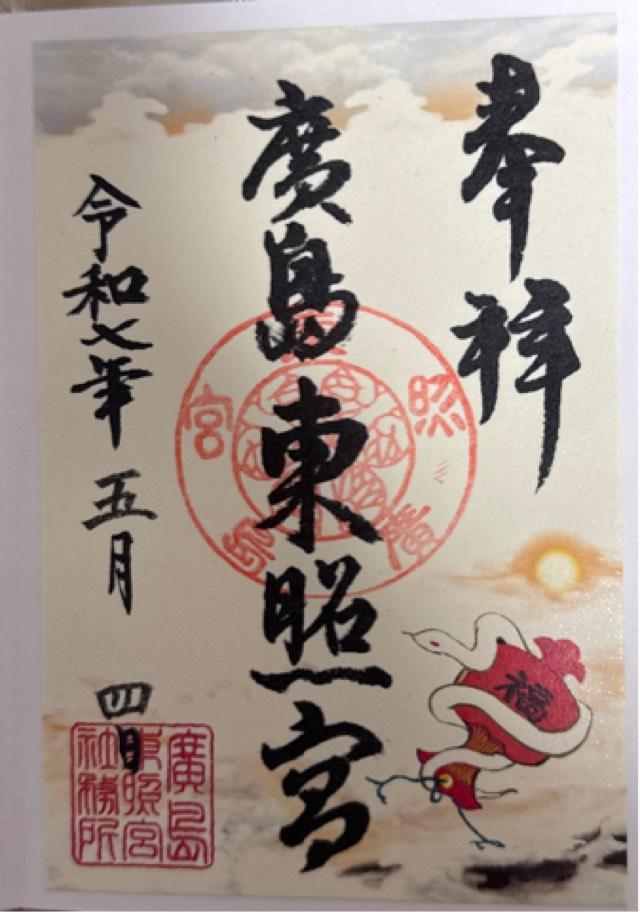 奉拝
廣島東照宮
令和七年五月四日
福
廣島
東照宮
社務所